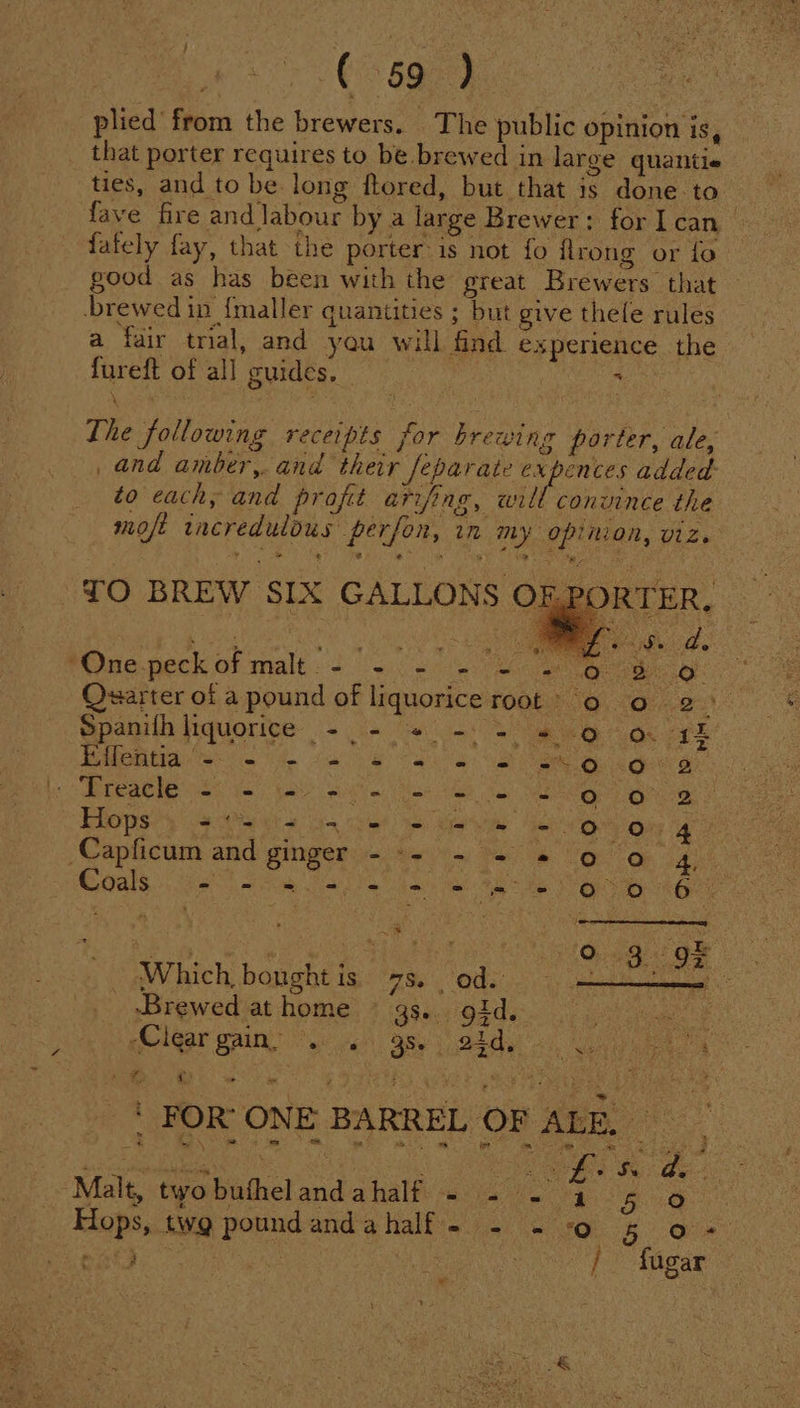 ( 59 )
plied from the brewers. The public opinion is,
that porter requires to be brewed in large quanti-
ties, and to be long ſtored, but that is done to
ſave fire and labour by a large Brewer: for I can
ſafely ſay, that the porter is not ſo ſtrong or ſo
good as has been with the great Brewers that
brewed in ſmaller quantities ; but give theſe rules
a fair trial, and you will find experience the
ſureſt of all guides.
The following receipts for brewing porter, ale,
and amber, and their ſeparate expences added
to each, and profit ariſing, will convince the
moſt incredulous perſon, in my opinion, viz.
TO BREW SIX GALLONS OF PORTER.
£. s. d.
One peck of malt - - - - - - 0 2 0
Quarter of a pound of liquorice root 0 0 2
Spaniſh liquorice - - - - - - 0 0 1½
Eſſentia - - - - - - - - - 0 0 2
Treacle - - - - - - - - - 0 0 2
Hops - - - - - - - - - 0 0 4
Capſicum and ginger - - - - - 0 0 4
Coals - - - - - - - - - 0 0 6
0 3 9½
Which bought is 7s. 0d.
Brewed at home 3s. 9½d.
Clear gain. . . 3s. 2½d.
FOR ONE BARREL OF ALE.
£. s. d.
Malt, two buſhel and a half - - - 1 5 0
Hops, two pound and a half - - - 0 5 0
ſugar